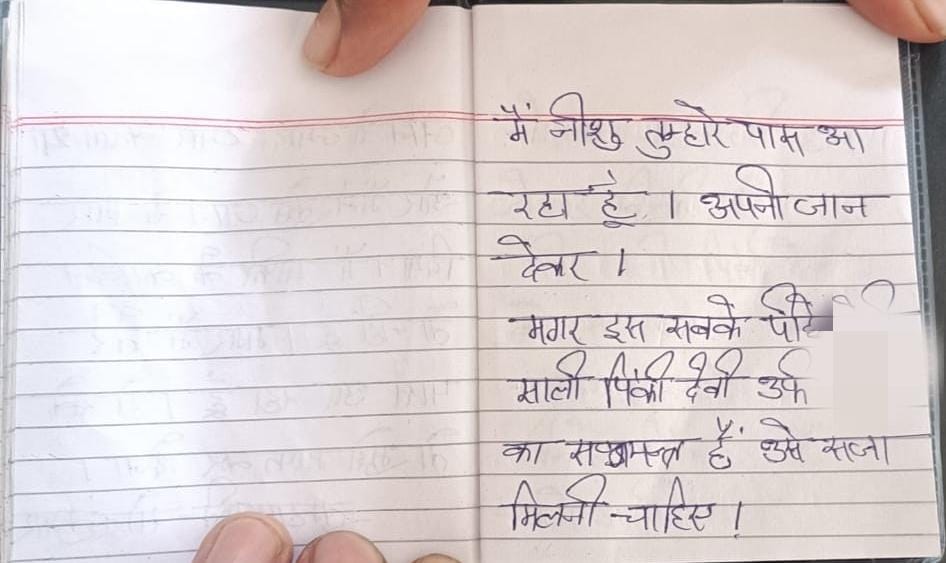 मैं नीशु तुम्हारे पास आ
रहा हूँ । अपनी जान
देकर ।
मगर इस सबके
साली पिंकी देवी उर्फ
का हैं उसे सजा
मिलनी चाहिए ।